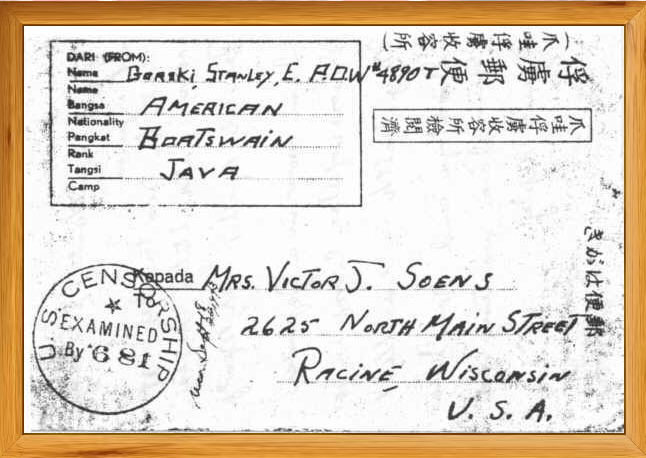 (爪哇俘虜收容所)
俘虜郵便
爪哇俘虜收容所檢閲濟
郵便はがき
DARI (FROM):
Name Gorski, Stanley, E. P.O.W #4890T
Name
Bangsa AMERICAN
Nationality
Pangkat BOATSWAIN
Rank
Tangsi JAVA
Camp
Kepada MRS. VICTOR J. SOENS
To
2625 NORTH MAIN STREET
RACINE, WISCONSIN
U. S. A.
U.S. CENSORSHIP
EXAMINED
By 681